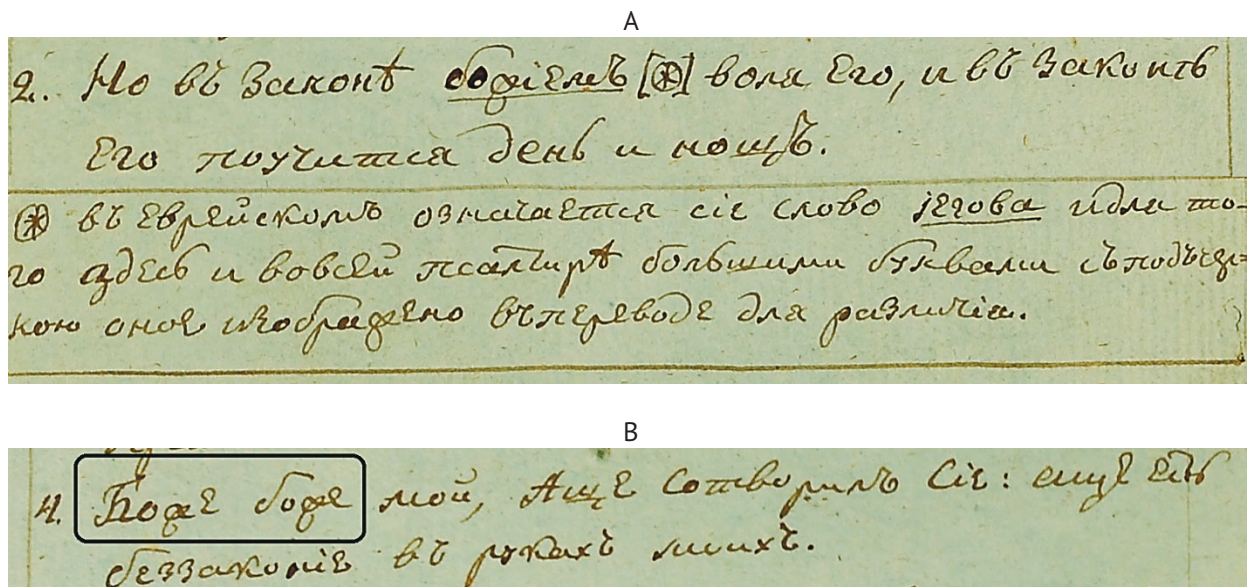 A
2. Но въ Законѣ божіемъ [*] воля Его, и въ Законѣ
Его поучится день и нощъ.
(*) въ Еврейскомъ означается сіе слово їегова и для то-
го здесь и вовсей псалтирѣ большими буквами съподъчер=
кою оное изображено въпереводе для различія.
B
4. Боже боже мой, Аще Сотворилъ Сіе: еще есть
беззаконіе въ рукахъ моихъ.